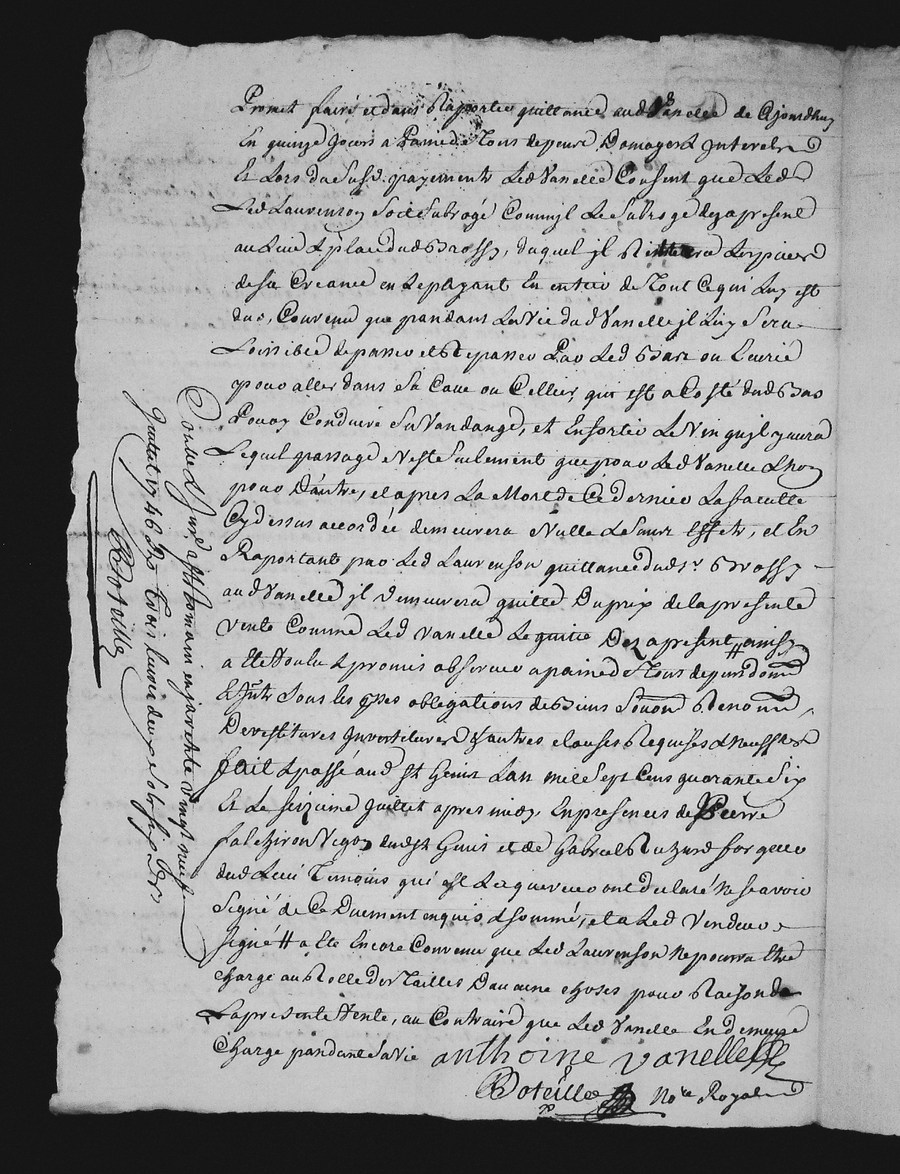 Promet faire et dans Raporter quittance aud Sr Vanelle de Ajourdhuy
En quinze Jours a Paine de Tous depens Domages & Interets
Et Lors du susd. payement Led Vanelle Consent que Led
Led Laurenson Soit Subrogé Comm jl Le Subroge dez apresent
au Lieu & place dud Brossy, duquel jl Retirera Les pieces
de sa Creance en Le payant En entier de Tout Ce qui Luy est
du, Convenu que pandant La Vie dud Vanelle jl Luy Sera
Loissible de passer et Repasser Par Led Bas ou Ecurie
pour aller dans Sa Cave ou Cellier, qui est a Costé dud Bas
Pour y Conduire Sa Vandange, et En sortir Le Vin qujl y aura
Lequel passage N'est Seulement que pour Led Vanelle & non
pour D'autre, et apres La Mort de Ce dernier La faculte
Cy dessus accordée demeurera Nulle & Sans Effets, et En
Raportant par Led Laurenson quittance dud Sr. Brossy
aud Vanelle jl Demeurera quitte Du prix de la presente
Vente Comme Led Vanelle Le quitte Dez apresent # ainsy
a Ete Voulu & promis observer a paine de Tous depens dom
& Jnts Sous les obligations de Biens Renon
Devestitures Investitures & autres clauses Requises & Necessres
fait & passé aud St Genis Lan mil Sept Cens quarante Six
Et Le seizieme Juillet apres midy En presences de Pierre
falchiron Vigon dud St Genis et de Gabriel forgeur
dud Lieu Temoins qui et Lacquereur ont declaré Ne scavoir
Signé de Ce Duement enquis & sommé, et a Led Vendeur
Signé # a Ete Encore Convenu que Led Laurenson Ne pourra Etre
Chargé au Rolle des Tailles D'aucune choses pour Raison de
La presente Vente, au Contraire que Led Vanelle En demeure
Chargé pandant Sa Vie anthoine vanelle
Boteille Nore Royal
Controllé & Jnsinué a St Romain en jarest Le Vingt neuf
Juillet 1746 Reçu Trois Livres deux Sols six Drs
Boteille